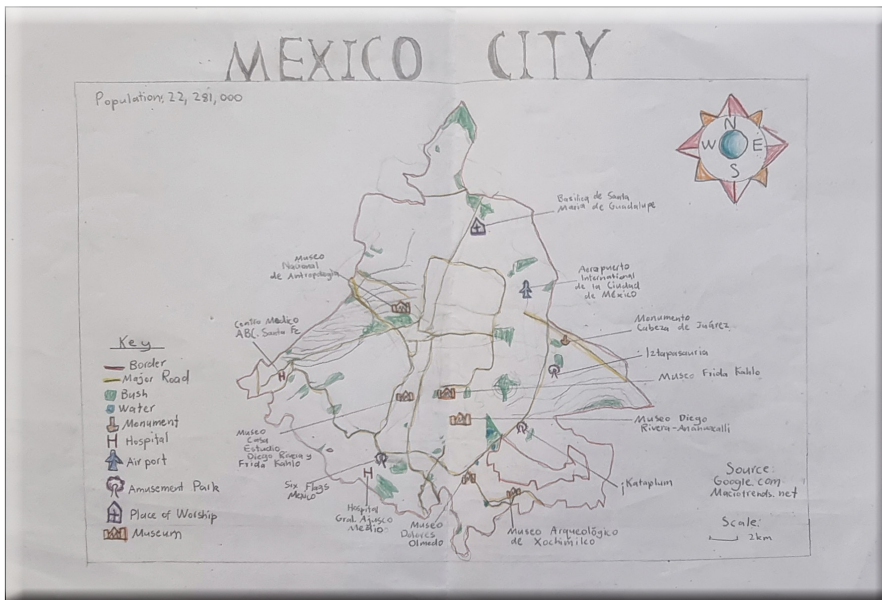 MEXICO CITY
Population: 22, 281,000
N
W E
S
Basilica de Santa
Maria de Guadalupe
Museo
Nacional
de Antropología
Aeropuerto
International
de la Ciudad
de México
Centro Medico
ABC. Santa Fe
Monumento
Cabeza de Juárez
Iztapasauria
Museo Frida Kahlo
Museo Diego
Rivera-Anahuacalli
Museo
Casa
Estudio
Diego Rivera y
Frida Kahlo
Six Flags
Mexico
Hospital
Gral. Ajusco
Medio
Museo
Dolores
Olmedo
Museo Arqueológico
de Xochimilco
¡Kataplum
Key
Border
Major Road
Bush
Water
Monument
H Hospital
Airport
Amusement Park
Place of Worship
Museum
H
H
Source:
Google.com
Macrotrends.net
Scale:
2km